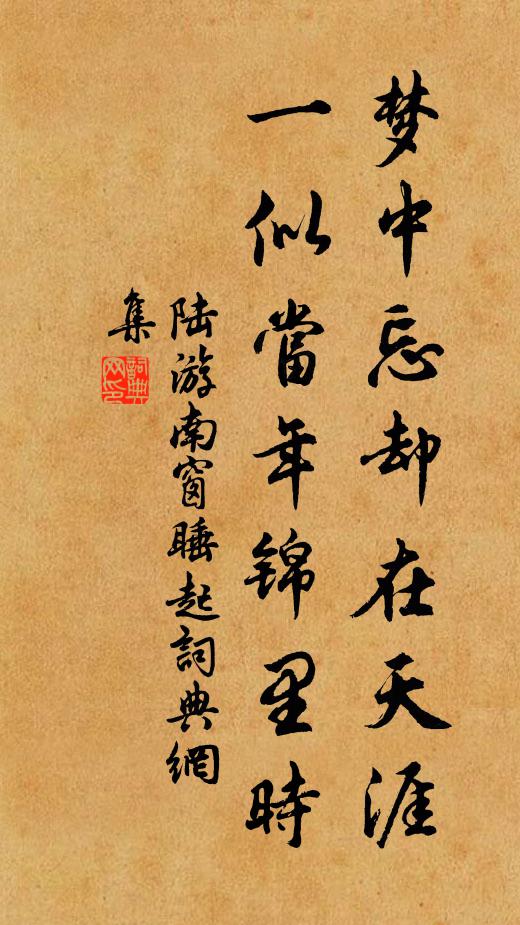 梦中忘却在天涯
一似當年锦里時
陆游南窗睡起詞典網
集
詞典
网印